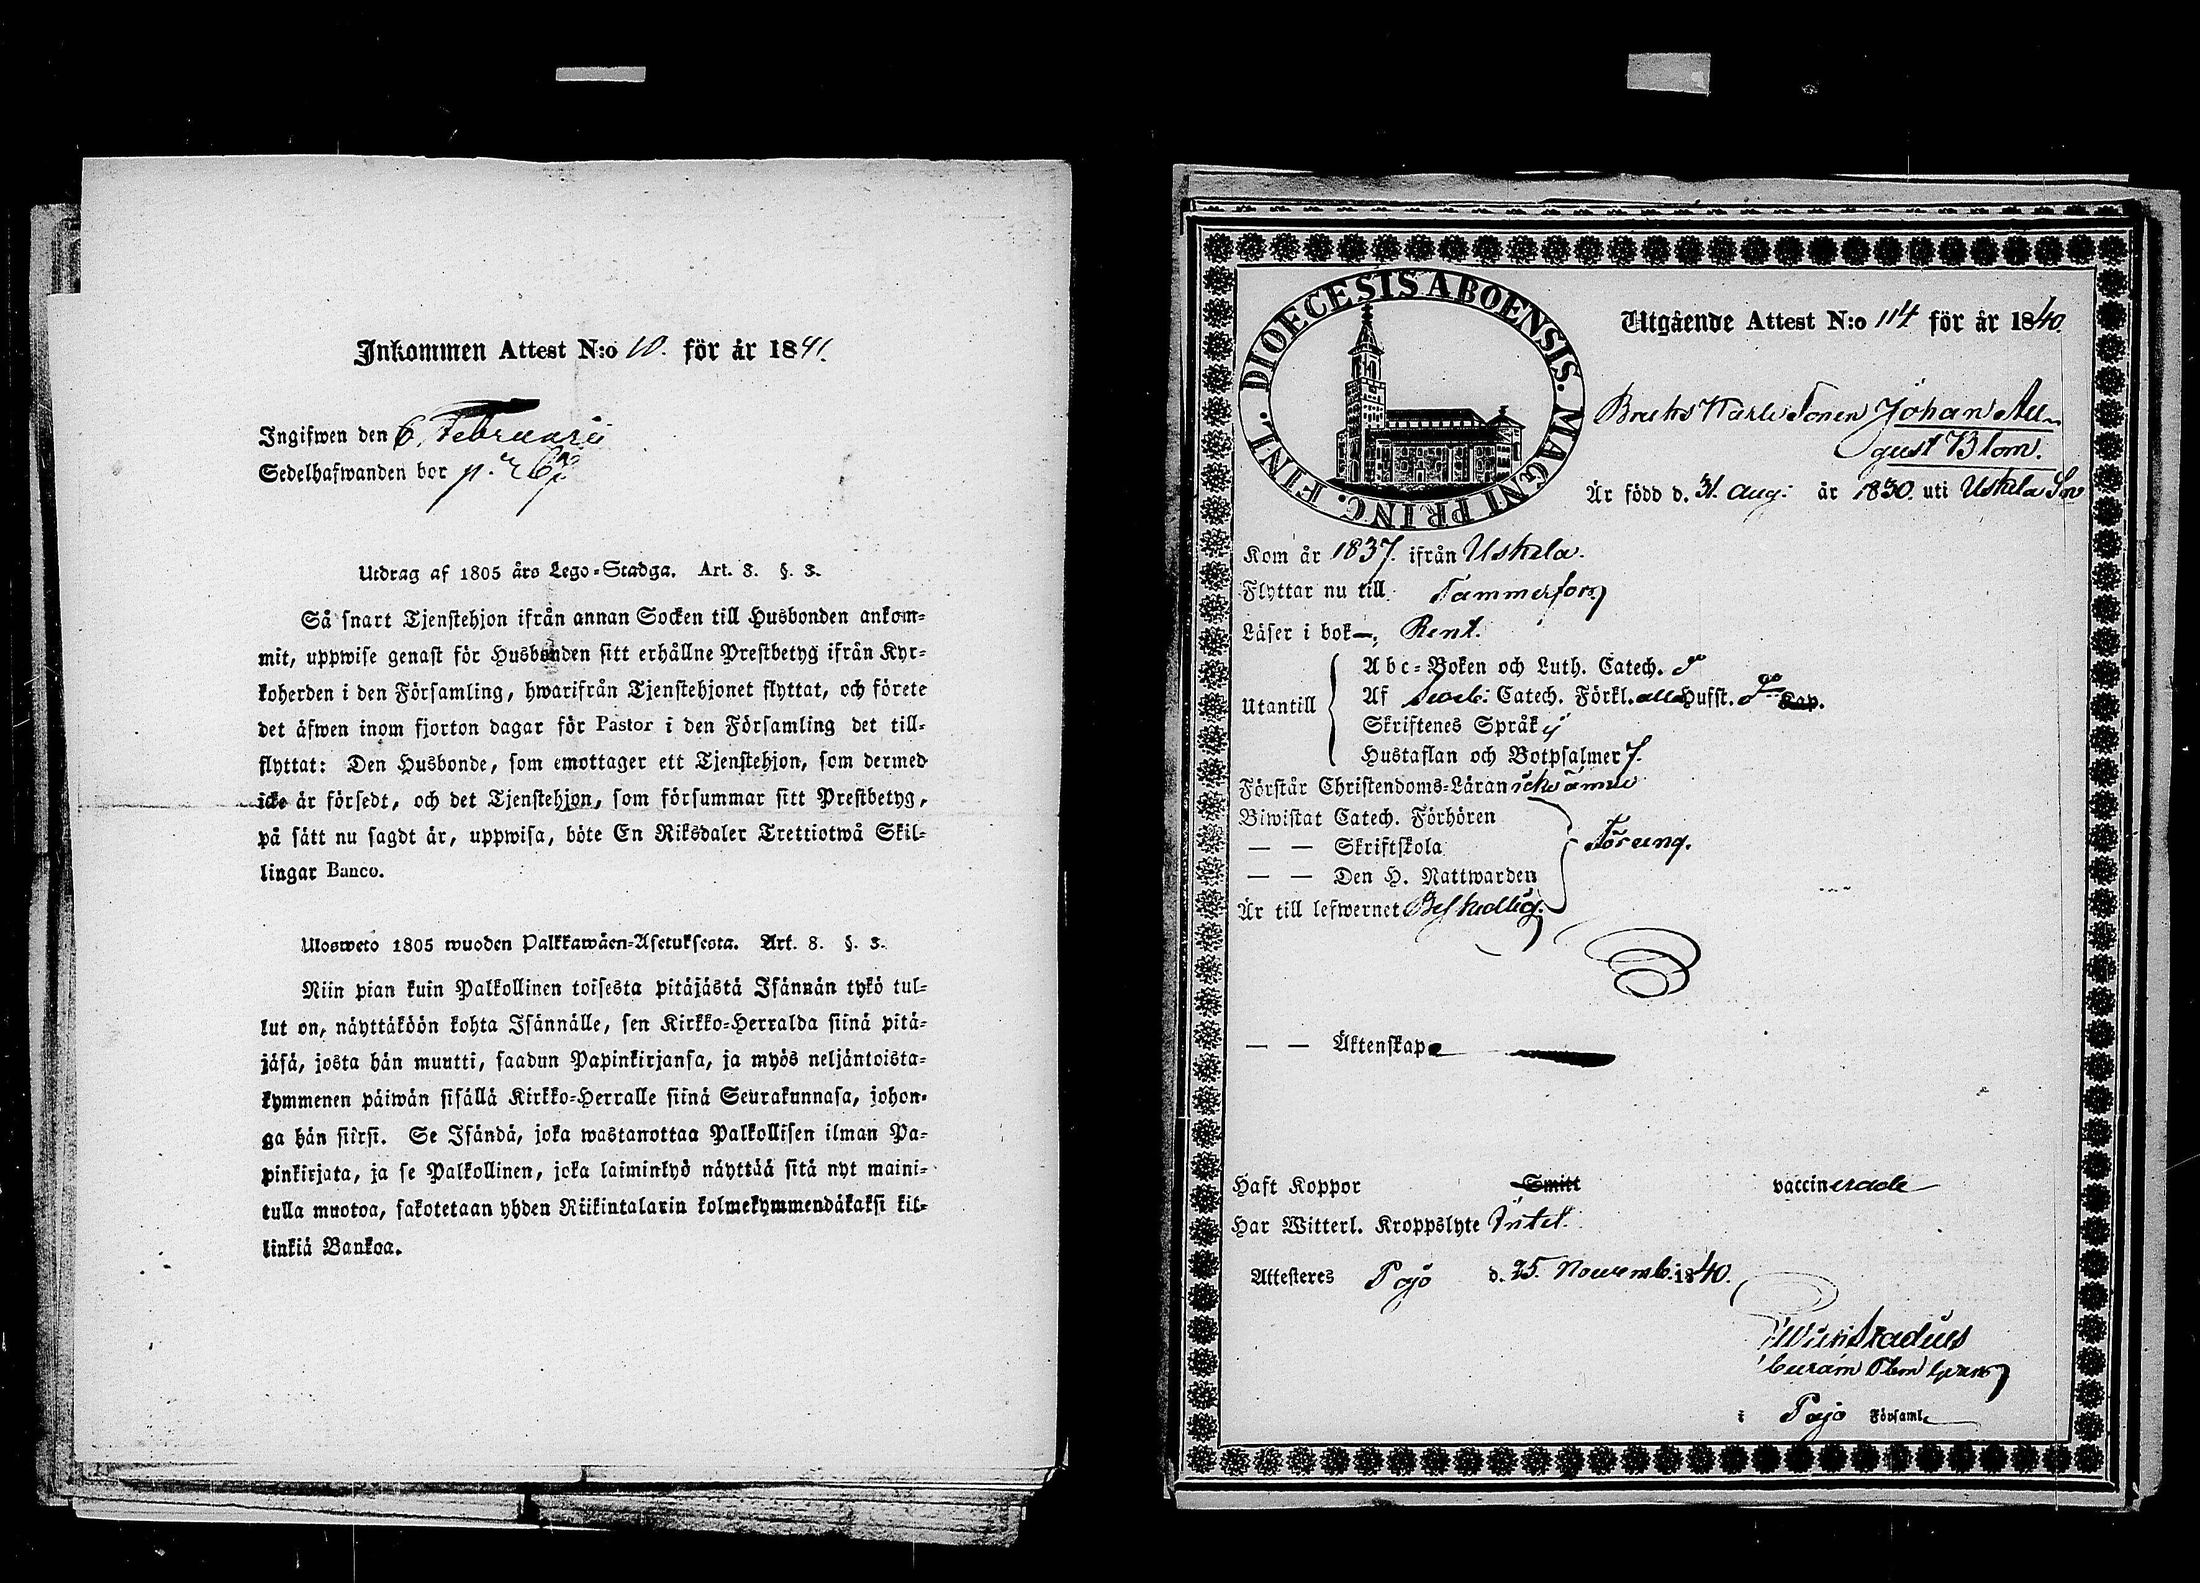 Inkommen Attest N:o 10. för år 1841.
Ingifwen den 6. Februarii
Sedelhafwanden bor
Utdrag af 1805 års Lego-Stadga. Art. 8. §. 3.
Så snart Tjenstehjon ifrån annan Socken till Husbonden ankom-
mit, uppwise genast för Husbonden sitt erhållne Prestbetyg ifrån Kyr-
koherden i den Församling, hwarifrån Tjenstehjonet flyttat, och förete
det äfwen inom fjorton dagar för Pastor i den Församling det till-
flyttat: Den Husbonde, som emottager ett Tjenstehjon, som dermed
icke är försedt, och det Tjenstehjon, som försummar sitt Prestbetyg,
på sätt nu sagdt är, uppwisa, böte En Riksdaler Trettiotwå Skil-
lingar Banco.
Ulosweto 1805 wuoden Palkkawäen-Asetuksesta. Art. 8. §. 3.
Niin pian kuin Palkollinen toisesta pitäjästä Isännän tykö tul-
lut on, näyttäköön kohta Isännälle, sen Kirkko-Herralda siinä pitä-
jäsä, josta hän muutti, saadun Papinkirjansa, ja myös neljäntoista-
kymmenen päiwän sisällä Kirkko-Herralle siinä Seurakunnasa, johon-
ga hän siirsi. Se Isändä, joka wastanottaa Palkollisen ilman Pa-
pinkirjata, ja se Palkollinen, joka laiminlyö näyttää sitä nyt maini-
tulla muotoa, sakotetaan yhden Riikintalarin kolmekymmendäkaksi kil-
linkiä Bankoa.
DIOECESIS ABOENSIS. MAGNI PRINC. FINL.
Utgående Attest N:o 114 för år 1840.
Bruks Karls Sonen Johan Au-
gust Blom.
Är född d. 31. Aug: år 1830. uti Uskela Soc
Kom år 1837. ifrån Uskela.
Flyttar nu till Tammerfors
Läser i bok Rent.
Utantill
Abc-Boken och Luth. Catech.
Af Sveb: Catech. Förkl. alla Hufst. Kap.
Skriftenes Språk ej
Hustaflan och Botpsalmer
Förstår Christendoms-Läran icke ännu
Biwistat Catech. Förhören
— — Skriftskola
— — Den H. Nattwarden
För ung.
Är till lefwernet Beskedlig.
— — Äktenskap
Haft Koppor Smitt vaccinerade
Har Witterl. Kroppslyte Intet.
Attesteres Pojo d. 25. Novemb. 1840.
i Pojo Församl.